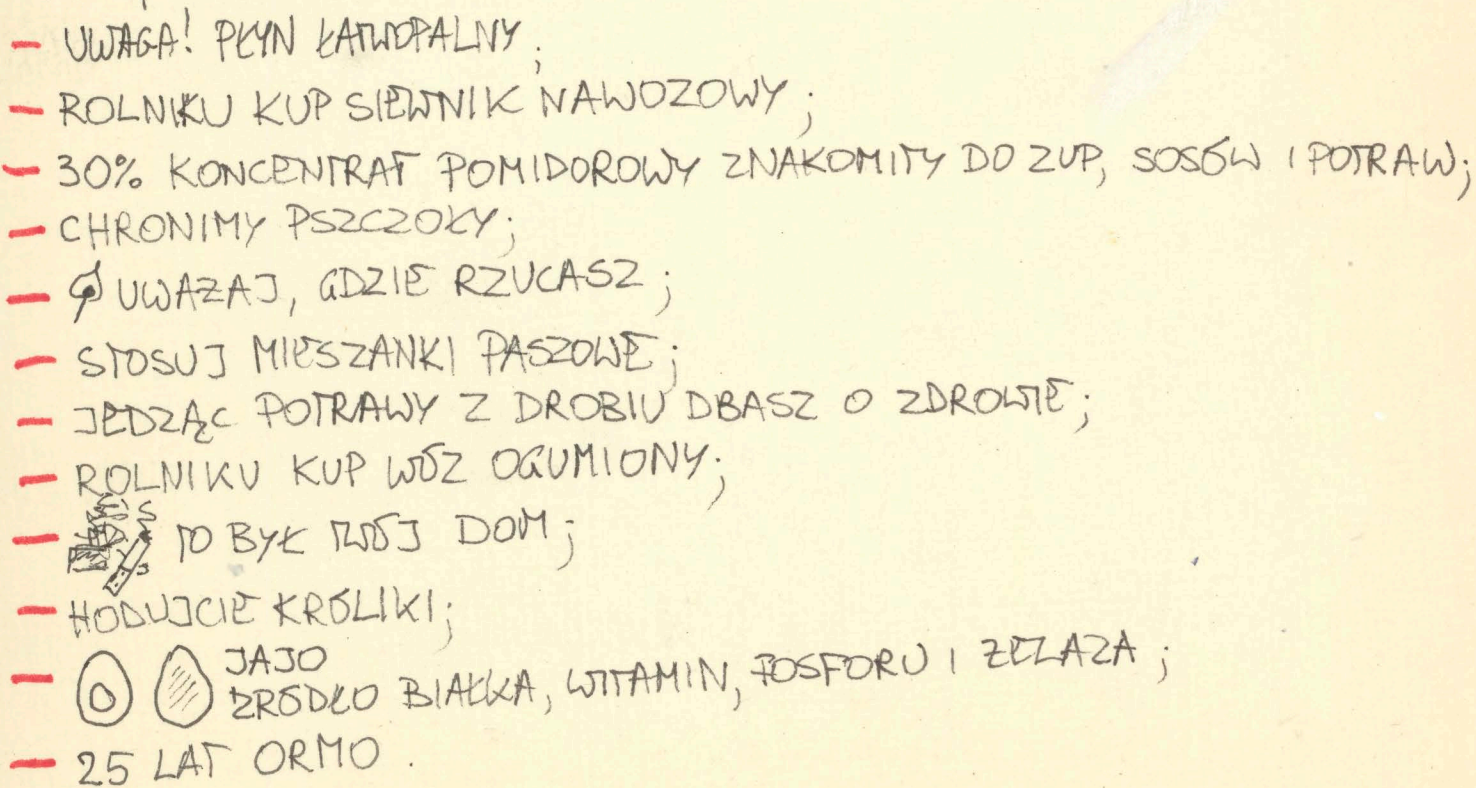 - UWAGA! PŁYN ŁATWOPALNY;
- ROLNIKU KUP SIEWNIK NAWOZOWY;
- 30% KONCENTRAT POMIDOROWY ZNAKOMITY DO ZUP, SOSÓW I POTRAW;
- CHRONIMY PSZCZOŁY;
- UWAŻAJ, GDZIE RZUCASZ;
- STOSUJ MIESZANKI PASZOWE;
- JEDZĄC POTRAWY Z DROBIU DBASZ O ZDROWIE;
- ROLNIKU KUP WÓZ OGUMIONY;
- TO BYŁ TWÓJ DOM;
- HODUJCIE KRÓLIKI;
- JAJO
ŹRÓDŁO BIAŁKA, WITAMIN, FOSFORU I ŻELAZA;
- 25 LAT ORMO.